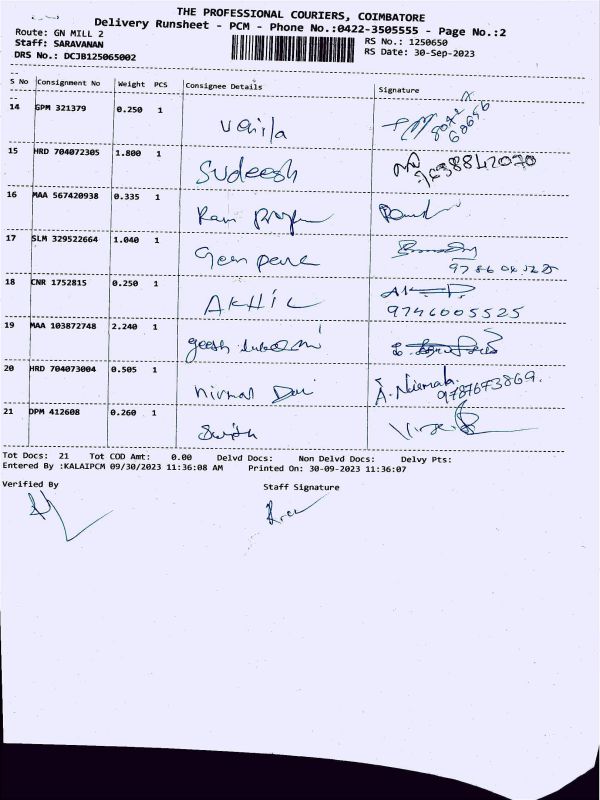 THE PROFESSIONAL COURIERS, COIMBATORE
Delivery Runsheet - PCM - Phone No.:0422-3505555 - Page No.:2
Route: GN MILL 2
RS No.: 1250650
Staff: SARAVANAN
RS Date: 30-Sep-2023
DRS No.: DCJB125065002
S No Consignment No Weight PCS Consignee Details Signature
14 GPM 321379 0.250 1
15 HRD 704072305 1.800 1 Sudeesh
16 MAA 567420938 0.335 1 Ram
17 SLM 329522664 1.040 1
18 CNR 1752815 0.250 1 AKHIL
9746005525
19 MAA 103872748 2.240 1
20 HRD 704073004 0.505 1 Nirmal Devi A. Nirmala
9787673869.
21 DPM 412608 0.260 1
Tot Docs: 21 Tot COD Amt: 0.00 Delvd Docs: Non Delvd Docs: Delvy Pts:
Entered By :KALAIPCM 09/30/2023 11:36:08 AM Printed On: 30-09-2023 11:36:07
Verified By Staff Signature